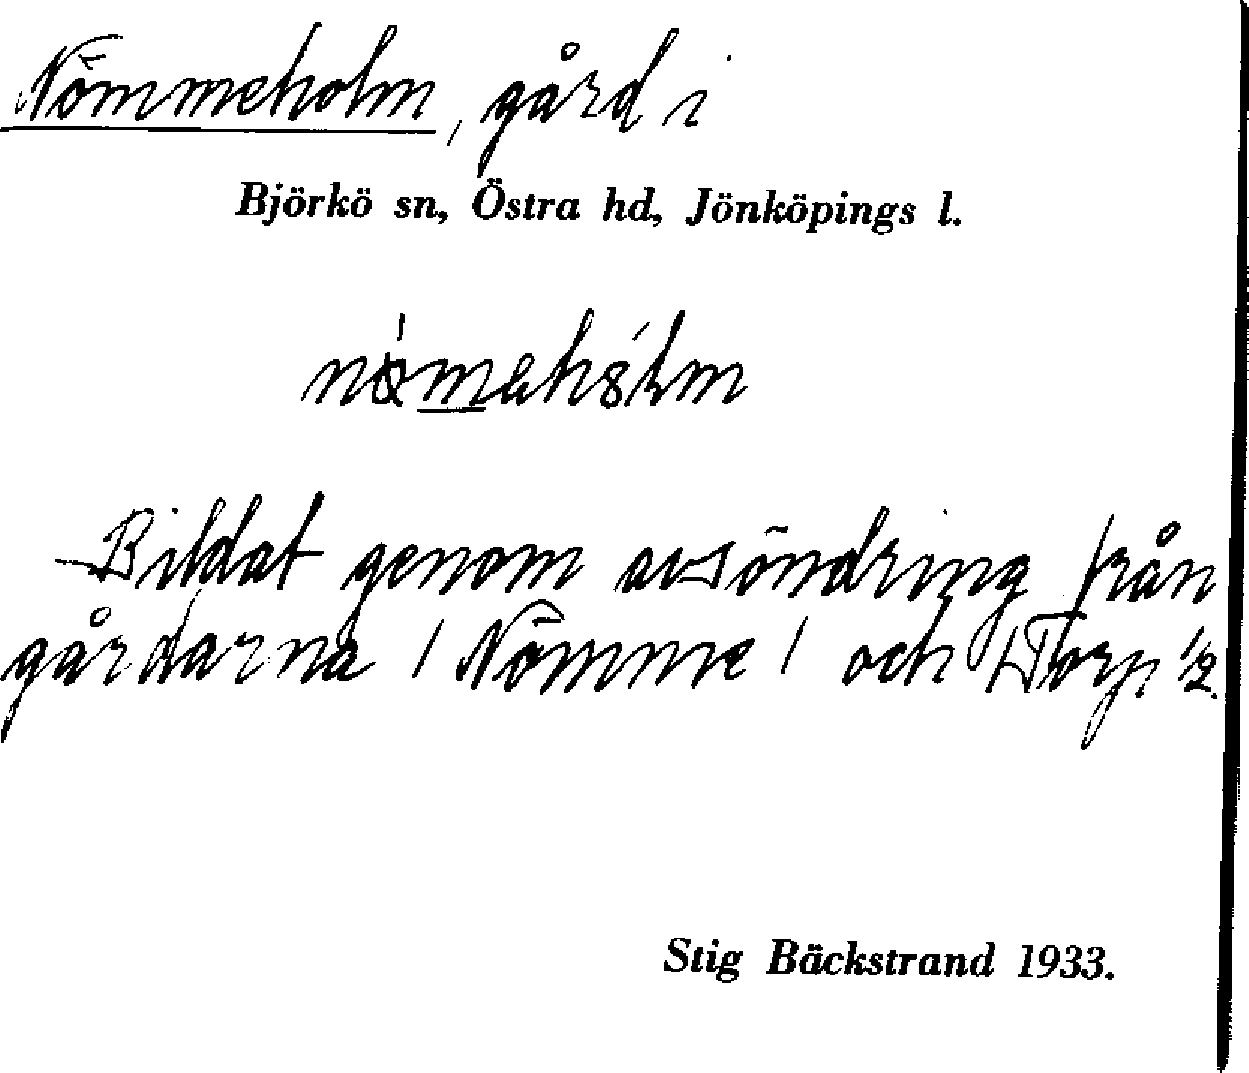 Nömmeholm, gård i
Björkö sn, Östra hd, Jönköpings l.
Bildat genom avsöndring från
gårdarna / Nömme / och / Torp /2.
Stig Bäckstrand 1933.